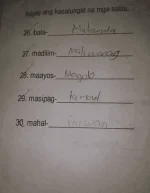 ang kasalungat na mga salita.
26. bata- Matanda
27. madilim- maliwanag
28. maayos- Magulo
29. masipag- tamad
30. mahal-